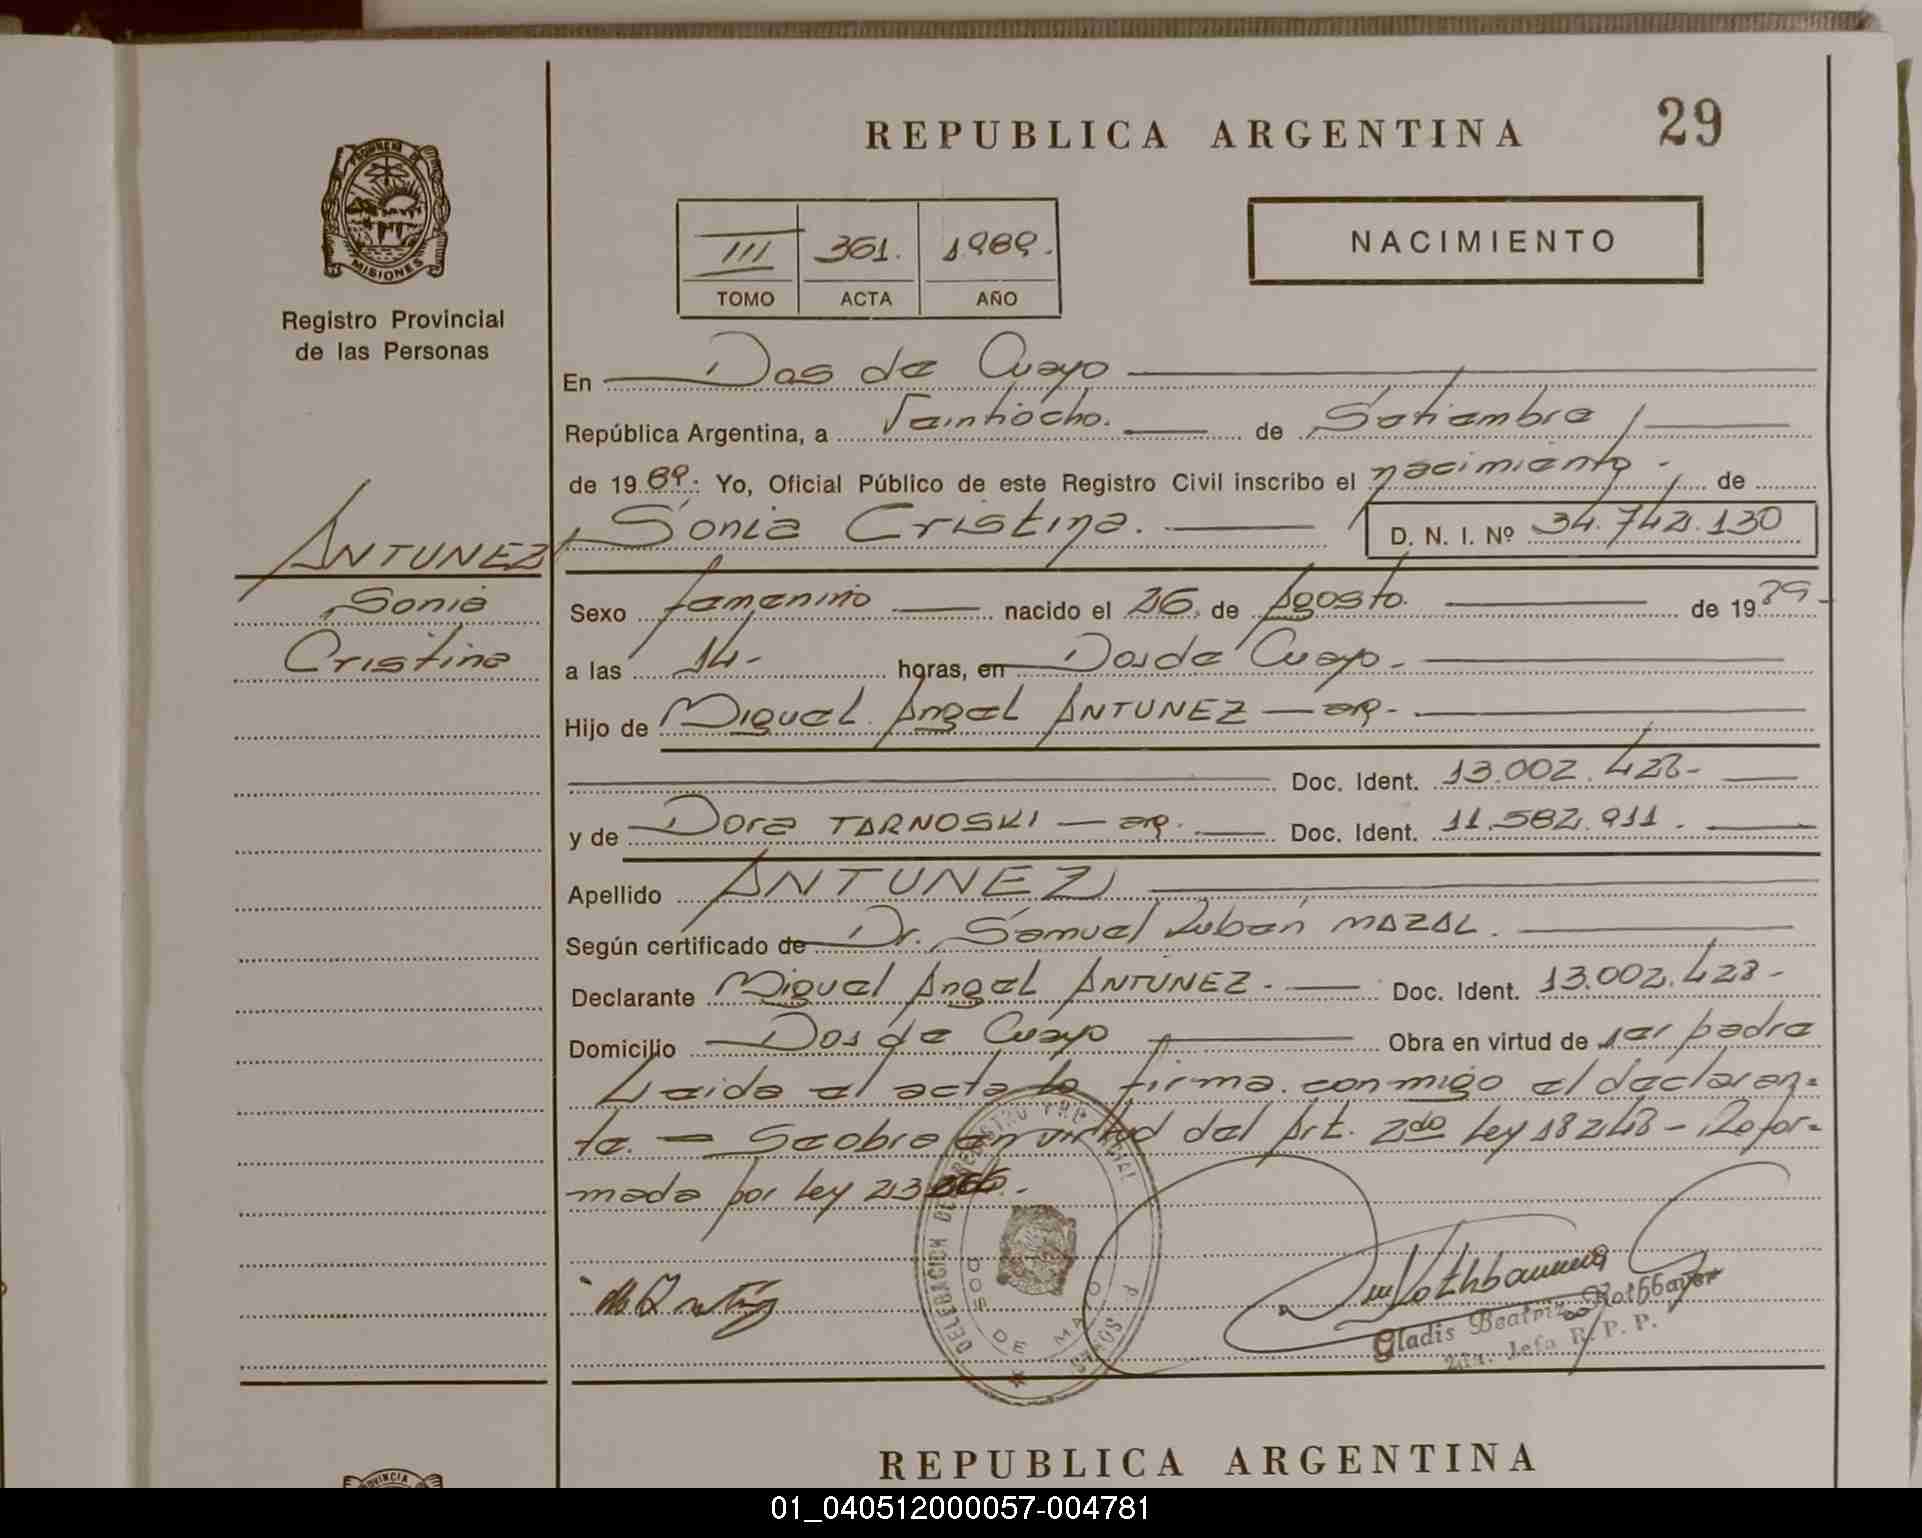 REPUBLICA ARGENTINA
29
PROVINCIA DE
MISIONES
Registro Provincial
de las Personas
III 361. 1989.
TOMO ACTA AÑO
NACIMIENTO
En Dos de Mayo
República Argentina, a Veintiocho. de Setiembre
de 1989. Yo, Oficial Público de este Registro Civil inscribo el nacimiento - de
Sonia Cristina. D. N. I. Nº 34.742.130
ANTUNEZ
Sonia
Cristina
Sexo femenino nacido el 26. de Agosto. de 1989
a las 14- horas, en Dos de Mayo.
Hijo de Miguel Angel ANTUNEZ — arg-
Doc. Ident. 13.002.428-
y de Dora TARNOSKI — arg. Doc. Ident. 11.582.911.
Apellido ANTUNEZ
Según certificado de Dr. Samuel Rubén MAZAL.
Declarante Miguel Angel ANTUNEZ. Doc. Ident. 13.002.428-
Domicilio Dos de Mayo Obra en virtud de ser padre
Leida el acta la firma conmigo el declaran=
te. — Se obra en virtud del Art. 2do Ley 18248 - Refor=
mada por Ley
DELEGACION DEL REGISTRO PROVINCIAL
DOS DE MAYO
Gladis Beatriz Rothbauer
Jefa R. P. P.
REPUBLICA ARGENTINA
PROVINCIA
01_040512000057-004781